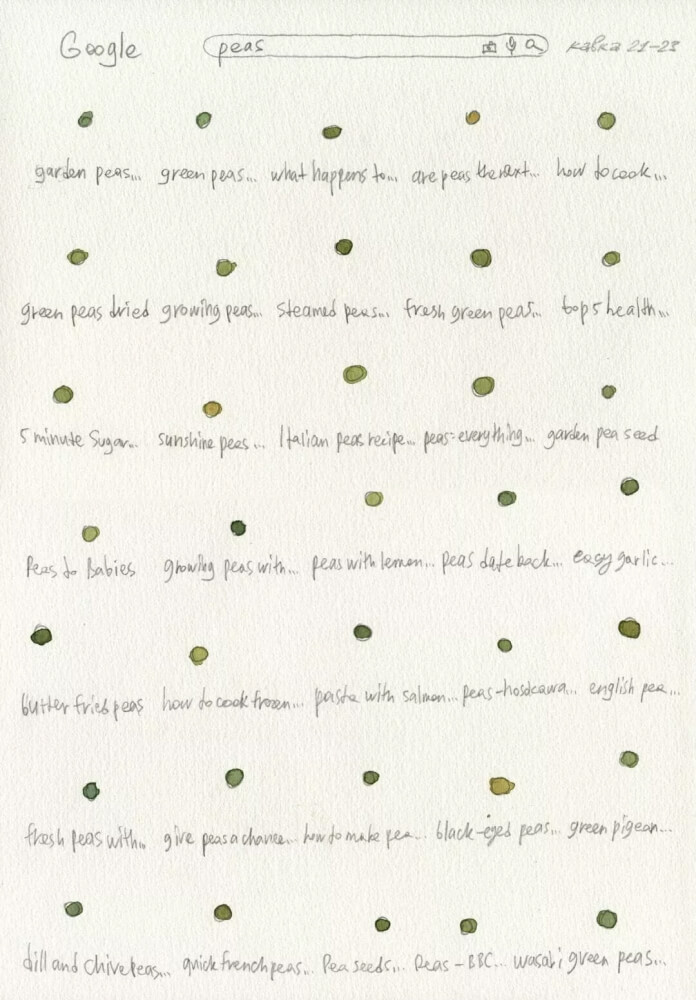 Google peas кавка 21-23
garden peas... green peas... what happens to... are peas the next... how to cook...
green peas dried growing peas... steamed peas... fresh green peas... top 5 health...
5 minute Sugar... sunshine peas... Italian peas recipe... peas-everything... garden pea seed
Peas to Babies growing peas with... peas with lemon... peas date back... easy garlic...
butter fried peas how to cook frozen... pasta with salmon... peas-hosokawa... english pea...
fresh peas with... give peas a chance... how to make pea... black-eyed peas... green pigean...
dill and chive peas... quick french peas... Pea seeds... Peas - BBC... wasabi green peas...